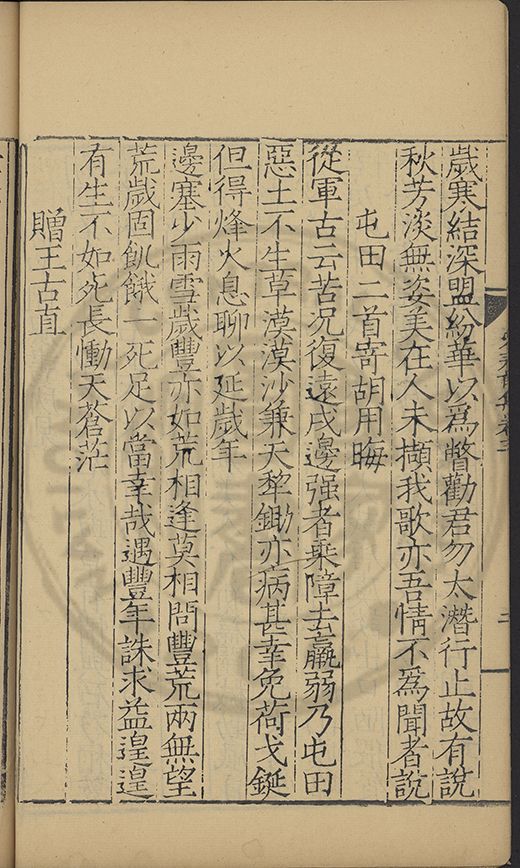 歲寒結深盟紛華以爲瞥勸君勿太潛行止故有說
秋芳淡無姿美在人未擷我歌亦吾情不爲聞者說
屯田二首寄胡用晦
從軍古云苦況復遠戍邊强者乗障去羸弱乃屯田
惡土不生草漠漠沙兼天犂鋤亦病甚幸免荷戈鋋
但得烽火息聊以延歲年
邊塞少雨雪歲豐亦如荒相逢莫相問豐荒兩無望
荒歲固飢餓一死足以當幸哉遇豐年誅求益遑遑
有生不如死長慟天蒼茫
贈王古直